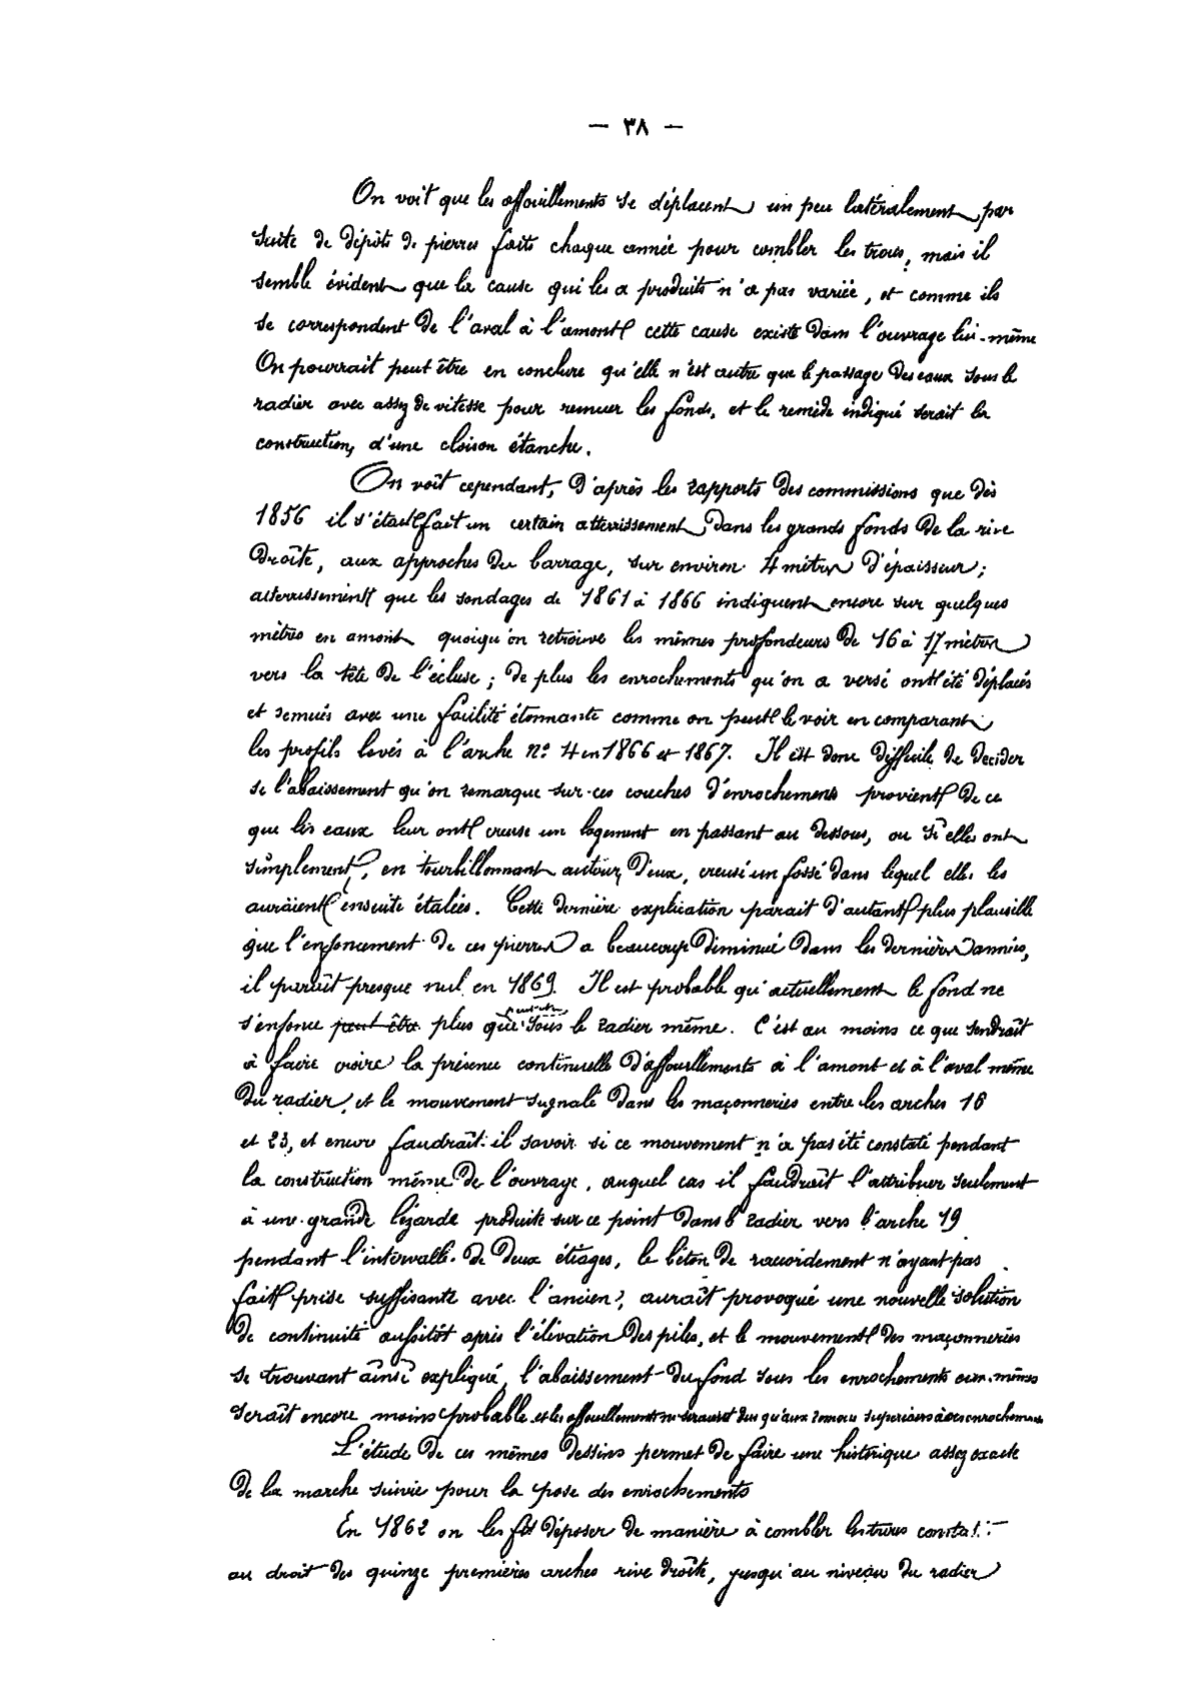 — ٣٨ —
On voit que les affouillements se déplacent un peu latéralement par
suite de dépôts de pierres faits chaque année pour combler les trous, mais il
semble évident que la cause qui les a produits n'a pas variée, et comme ils
se correspondent de l'aval à l'amont cette cause existe dans l'ouvrage lui-même
On pourrait peut être en conclure qu'elle n'est autre que le passage des eaux sous le
radier avec assez de vitesse pour remuer les fonds, et le remède indiqué serait la
construction, d'une cloison étanche.
On voit cependant, d'après les rapports des commissions que dès
1856 il s'était fait un certain atterrissement dans les grands fonds de la rive
droite, aux approches du barrage, sur environ 4 mètres d'épaisseur ;
atterrissement que les sondages de 1861 à 1866 indiquent encore sur quelques
mètres en amont quoiqu'on retrouve les mêmes profondeurs de 16 à 17 mètres
vers la tête de l'écluse ; de plus les enrochements qu'on a versé ont été déplacés
et remués avec une facilité étonnante comme on peut le voir en comparant
les profils levés à l'arche n° 4 en 1866 et 1867. Il est donc difficile de décider
si l'abaissement qu'on remarque sur ces couches d'enrochements provient de ce
que les eaux leur ont creusé un logement en passant au dessous, ou si elles ont
simplement, en tourbillonnant autour d'eux, creusé un fossé dans lequel elles les
auraient ensuite étalées. Cette dernière explication parait d'autant plus plausible
que l'enfoncement de ces pierres a beaucoup diminué dans les dernières années,
il parait presque nul en 1869. Il est probable qu'actuellement le fond ne
s'enfonce peut être plus que peut-être sous le radier même. C'est au moins ce que tendrait
à faire croire la présence continuelle d'affouillements à l'amont et à l'aval même
du radier, et le mouvement signalé dans les maçonneries entre les arches 16
et 23, et encore faudrait-il savoir si ce mouvement n'a pas été constaté pendant
la construction même de l'ouvrage, auquel cas il faudrait l'attribuer seulement
à une grande lézarde produite sur ce point dans l' radier vers l'arche 19
pendant l'intervalle de deux étiages, le béton de raccordement n'ayant pas
fait prise suffisante avec l'ancien, aurait provoqué une nouvelle solution
de continuité aussitôt après l'élévation des piles, et le mouvement des maçonneries
se trouvant ainsi expliqué, l'abaissement du fond sous les enrochements eux-mêmes
serait encore moins probable et les affouillements ne seraient dus qu'aux remous superieurs à ces enrochements
L'étude de ces mêmes dessins permet de faire une historique assez exacte
de la marche suivie pour la pose des enrochements
En 1862 on les fit déposer de manière à combler les trous
au droit des quinze premières arches rive droite, jusqu'au niveau du radier